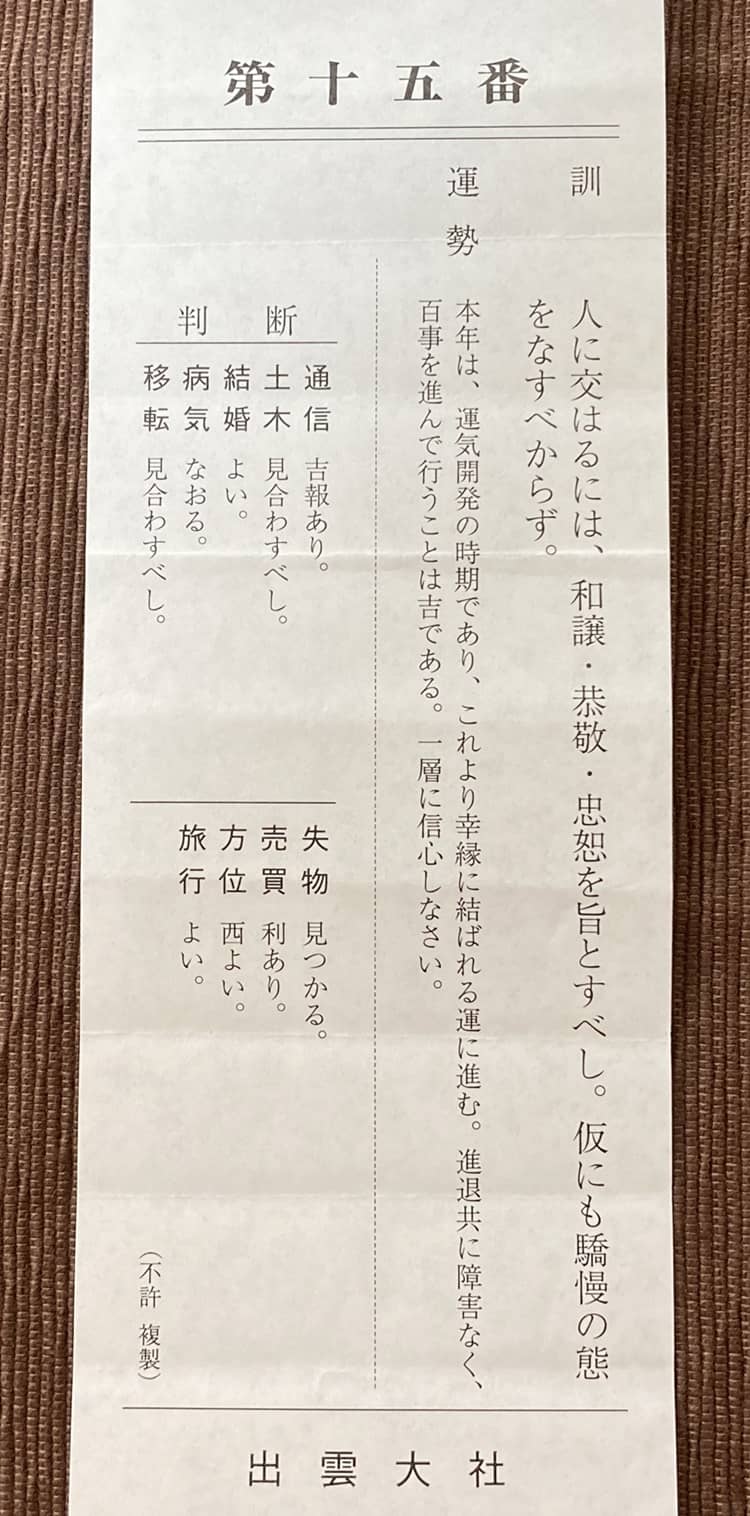 第十五番
訓
人に交はるには、和譲・恭敬・忠恕を旨とすべし。仮にも驕慢の態
をなすべからず。
運勢
本年は、運気開発の時期であり、これより幸縁に結ばれる運に進む。進退共に障害なく、
百事を進んで行うことは吉である。一層に信心しなさい。
判断
通信 吉報あり。
土木 見合わすべし。
結婚 よい。
病気 なおる。
移転 見合わすべし。
失物 見つかる。
売買 利あり。
方位 西よい。
旅行 よい。
（不許 複製）
出雲大社